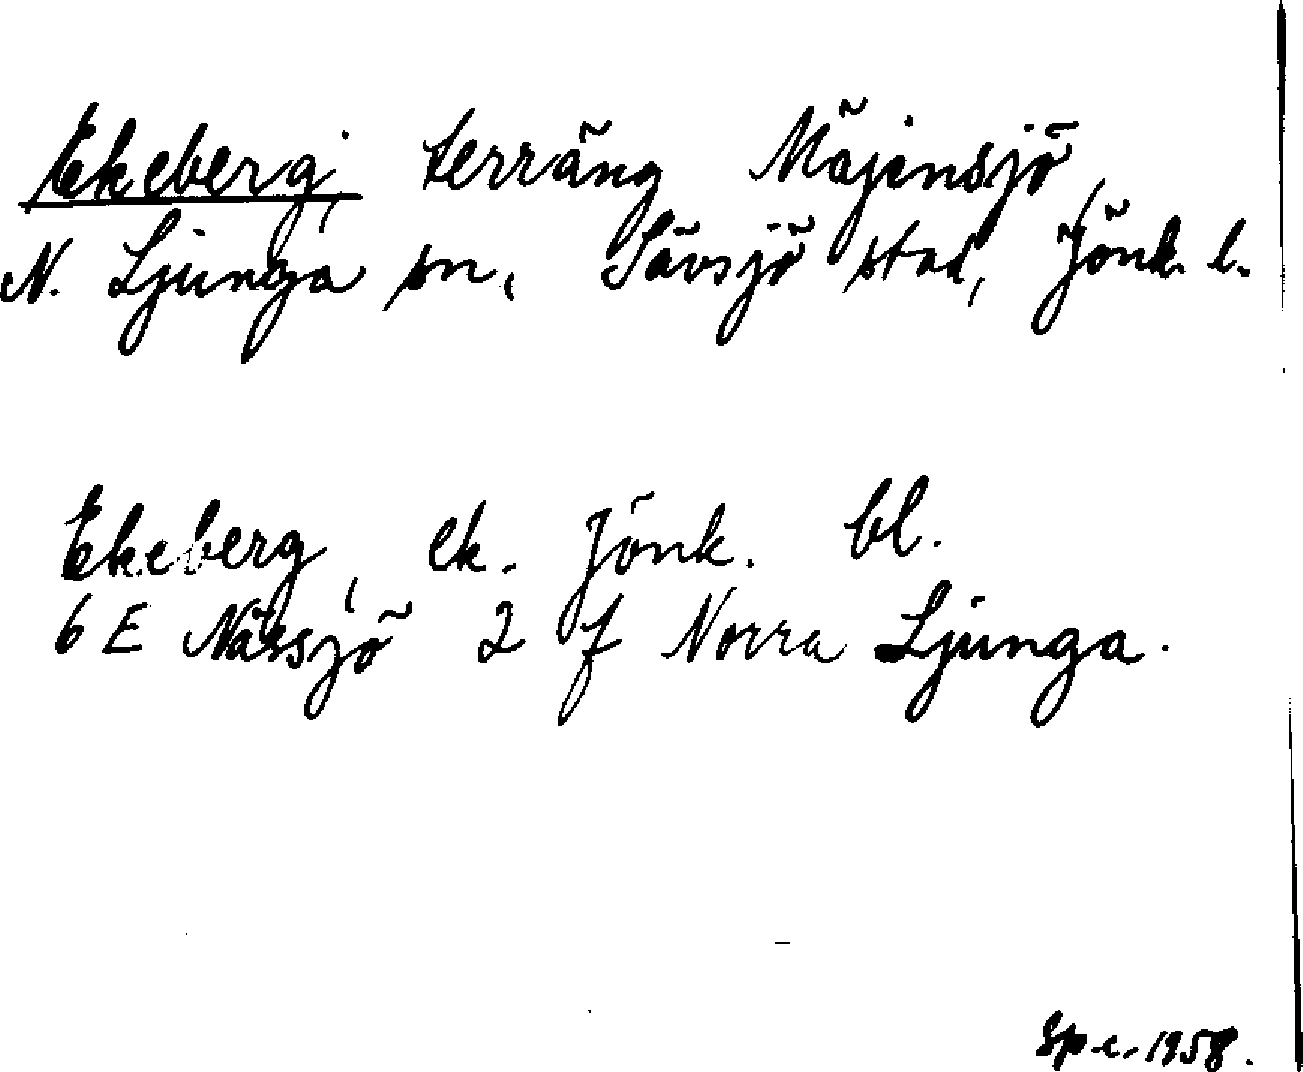 Ekeberg, terräng Mäjensjö,
N. Ljunga sn, Sävsjö stad, Jönk. l.
Ekeberg, ek. Jönk. bl.
6 E Nässjö 2 f Norra Ljunga.
1958.